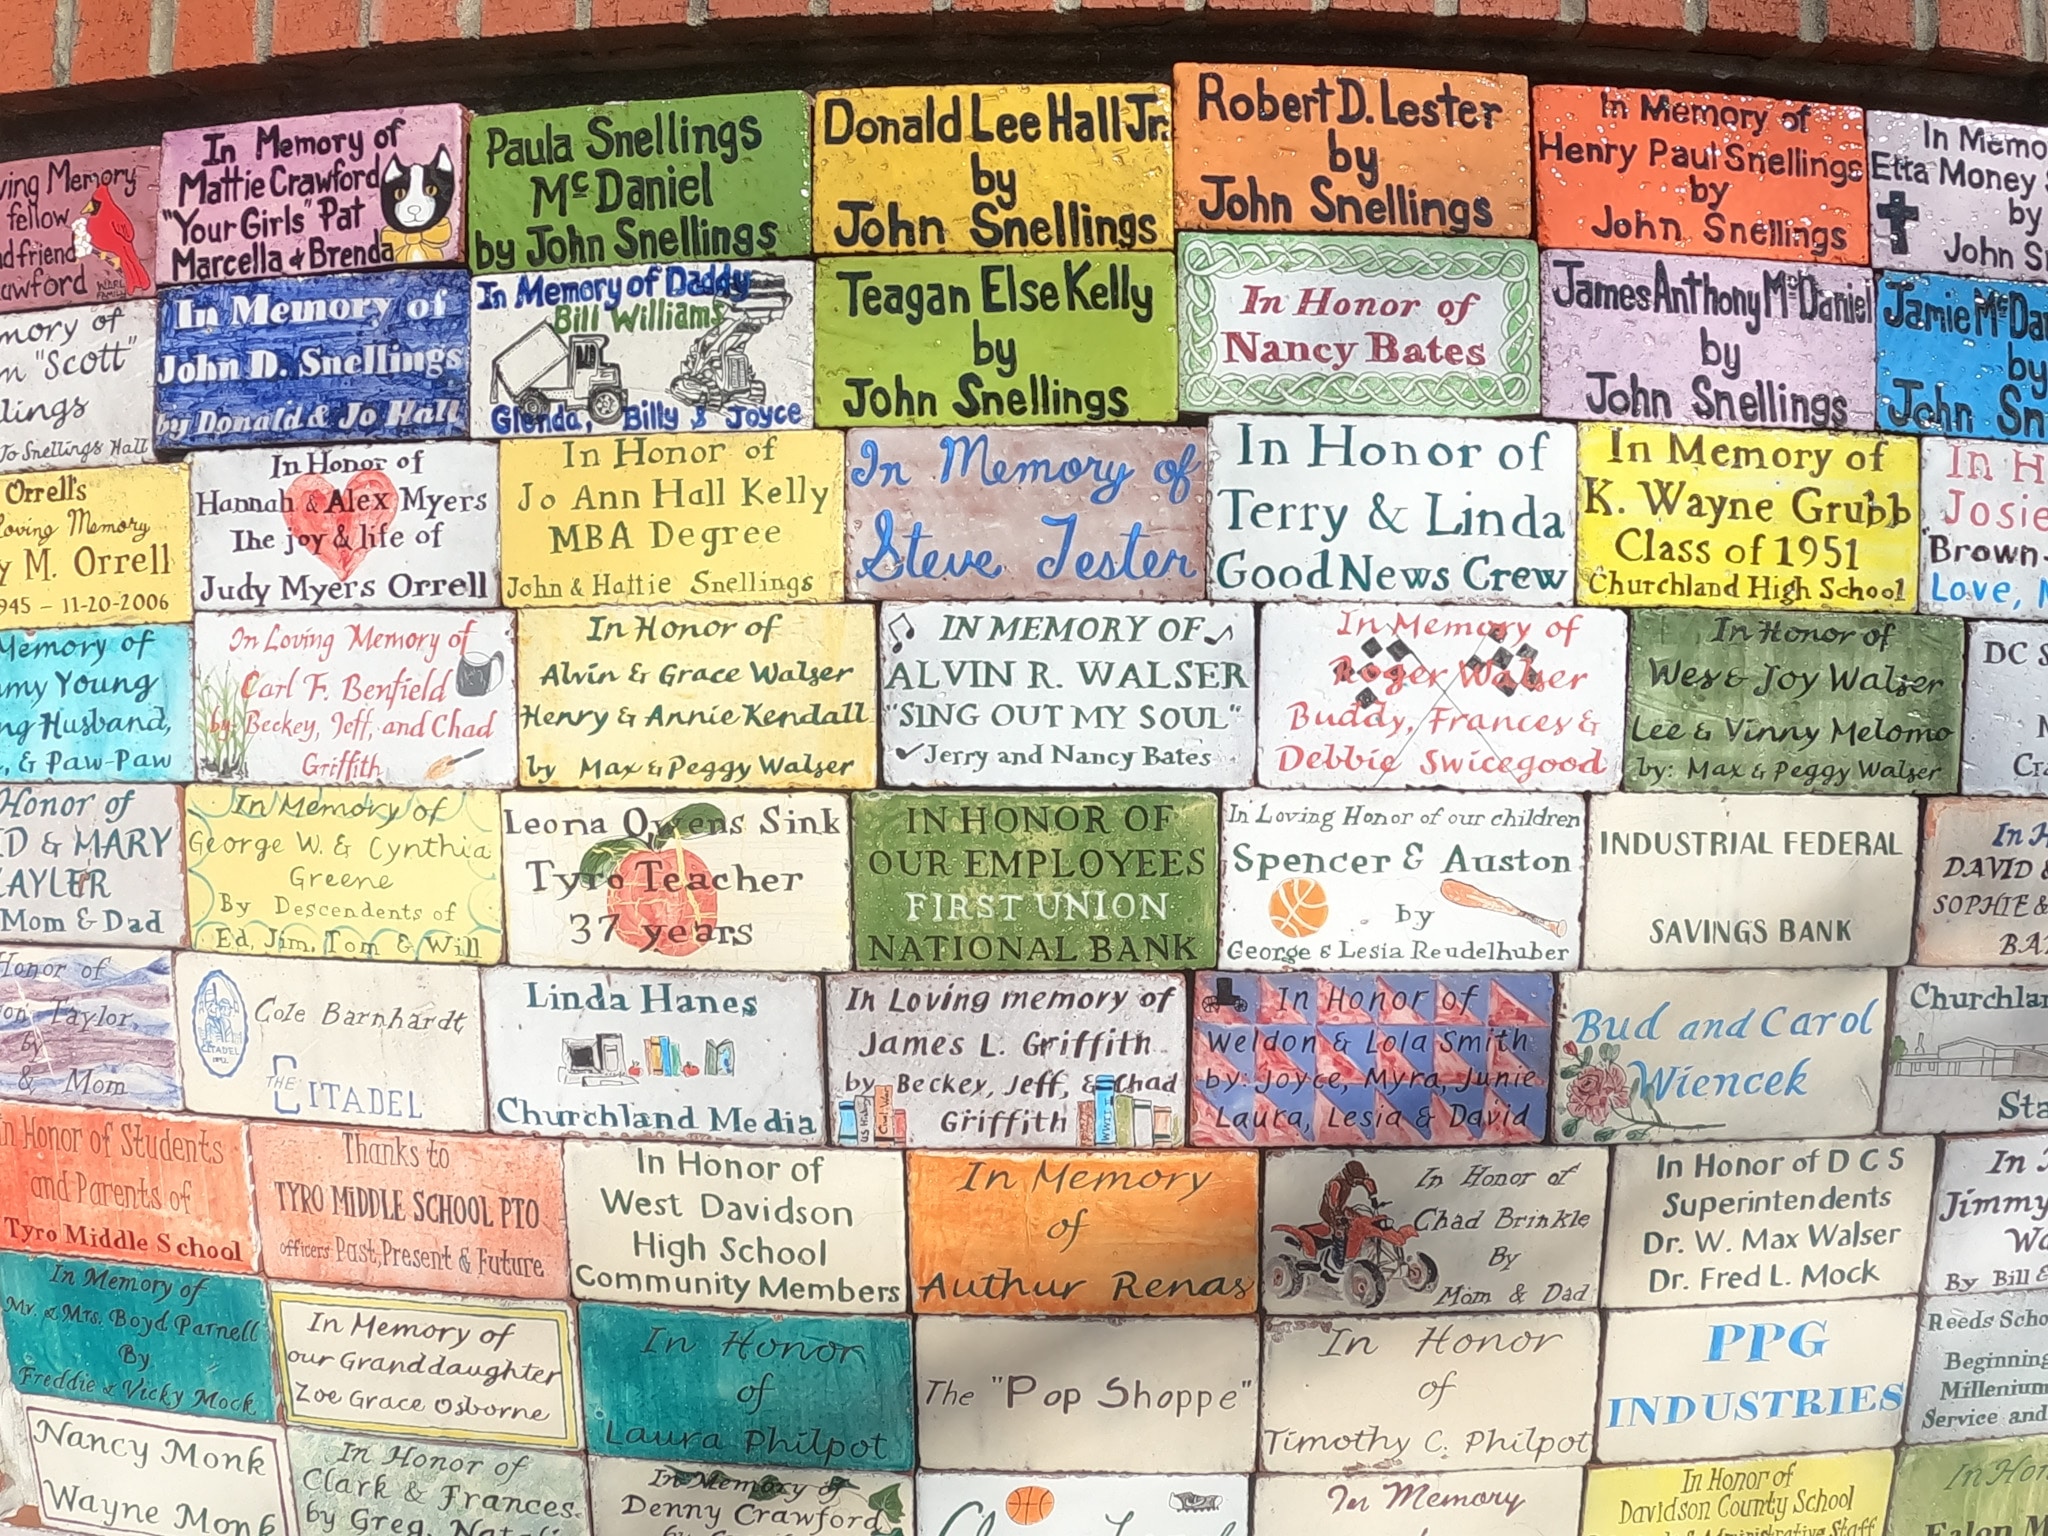 ving Memory
fellow
d friend
awford
In Memory of
Mattie Crawford
"Your Girls" Pat
Marcella & Brenda
Paula Snellings
McDaniel
by John Snellings
Donald Lee Hall Jr.
by
John Snellings
Robert D. Lester
by
John Snellings
In Memory of
Henry Paul Snellings
by
John Snellings
In Memo
Etta Money
by
John S
mory of
m "Scott"
lings
Jo Snellings Hall
In Memory of
John D. Snellings
by Donald & Jo Hall
In Memory of Daddy
Bill Williams
Glenda, Billy & Joyce
Teagan Else Kelly
by
John Snellings
In Honor of
Nancy Bates
James Anthony McDaniel
by
John Snellings
Jamie McDa
by
John Sn
Orrell's
Loving Memory
y M. Orrell
945 - 11-20-2006
In Honor of
Hannah & Alex Myers
The joy & life of
Judy Myers Orrell
In Honor of
Jo Ann Hall Kelly
MBA Degree
John & Hattie Snellings
In Memory of
Steve Tester
In Honor of
Terry & Linda
Good News Crew
In Memory of
K. Wayne Grubb
Class of 1951
Churchland High School
In H
Josie
Brown-
Love,
Memory of
mmy Young
ng Husband,
, & Paw-Paw
In Loving Memory of
Carl F. Benfield
by Beckey, Jeff, and Chad
Griffith
In Honor of
Alvin & Grace Walser
Henry & Annie Kendall
by Max & Peggy Walser
IN MEMORY OF
ALVIN R. WALSER
"SING OUT MY SOUL"
Jerry and Nancy Bates
In Memory of
Roger Walser
Buddy, Frances &
Debbie Swicegood
In Honor of
Wes & Joy Walser
Lee & Vinny Melomo
by: Max & Peggy Walser
DC S
Cra
Honor of
ID & MARY
AYLER
Mom & Dad
In Memory of
George W. & Cynthia
Greene
By Descendents of
Ed, Jim, Tom & Will
Leona Owens Sink
Tyro Teacher
37 years
IN HONOR OF
OUR EMPLOYEES
FIRST UNION
NATIONAL BANK
In Loving Honor of our children
Spencer & Auston
by
George & Lesia Reudelhuber
INDUSTRIAL FEDERAL
SAVINGS BANK
In H
DAVID &
SOPHIE &
BA
Honor of
on Taylor,
by
& Mom
CITADEL
Cole Barnhardt
THE
CITADEL
Linda Hanes
Churchland Media
In Loving memory of
James L. Griffith
by Beckey, Jeff, & Chad
Griffith
US History
Civil War
WWII
In Honor of
Weldon & Lola Smith
by: Joyce, Myra, Junie
Laura, Lesia & David
Bud and Carol
Wiencek
Churchlan
Sta
In Honor of Students
and Parents of
Tyro Middle School
Thanks to
TYRO MiDDLE SCHOOL PTO
officers Past, Present & Future
In Honor of
West Davidson
High School
Community Members
In Memory
of
Authur Renas
In Honor of
Chad Brinkle
By
Mom & Dad
In Honor of D C S
Superintendents
Dr. W. Max Walser
Dr. Fred L. Mock
In
Jimmy
Wa
By Bill &
In Memory of
Mr. & Mrs. Boyd Parnell
By
Freddie & Vicky Mock
In Memory of
our Granddaughter
Zoe Grace Osborne
In Honor
of
Laura Philpot
The "Pop Shoppe"
In Honor
of
Timothy C. Philpot
PPG
INDUSTRIES
Reeds Scho
Beginning
Millenium
Service and
Nancy Monk
Wayne Monk
In Honor of
Clark & Frances
by Greg, Natali
In Memory of
Denny Crawford
In Memory
In Honor of
Davidson County School
& Administrative Staff
In Hon